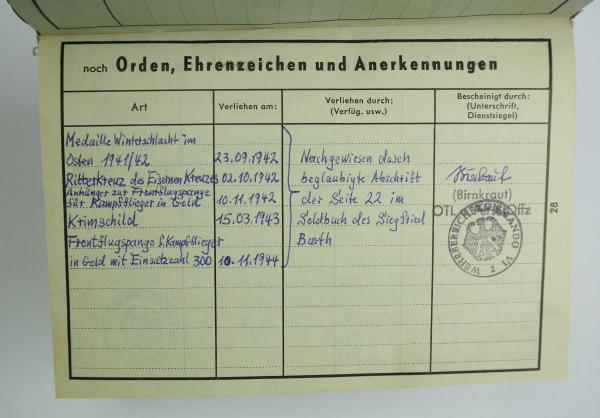 noch Orden, Ehrenzeichen und Anerkennungen
Art
Verliehen am:
Verliehen durch:
(Verfüg. usw.)
Bescheinigt durch:
(Unterschrift,
Dienstsiegel)
Medaille Winterschlacht im
Osten 1941/42 23.09.1942
Ritterkreuz des Eisernen Kreuzes 02.10.1942
Anhänger zur Frontflugspange
für Kampfflieger in Gold 10.11.1942
Krimschild 15.03.1943
Frontflugspange f. Kampfflieger
in Gold mit Einsatzzahl 300 10.11.1944
Nachgewiesen durch
beglaubigte Abschrift
der Seite 22 im
Soldbuch des Siegfried
Barth
(Birnkraut)
OTL u. PersOffz
WEHRBEREICHSKOMMANDO VI
2
28